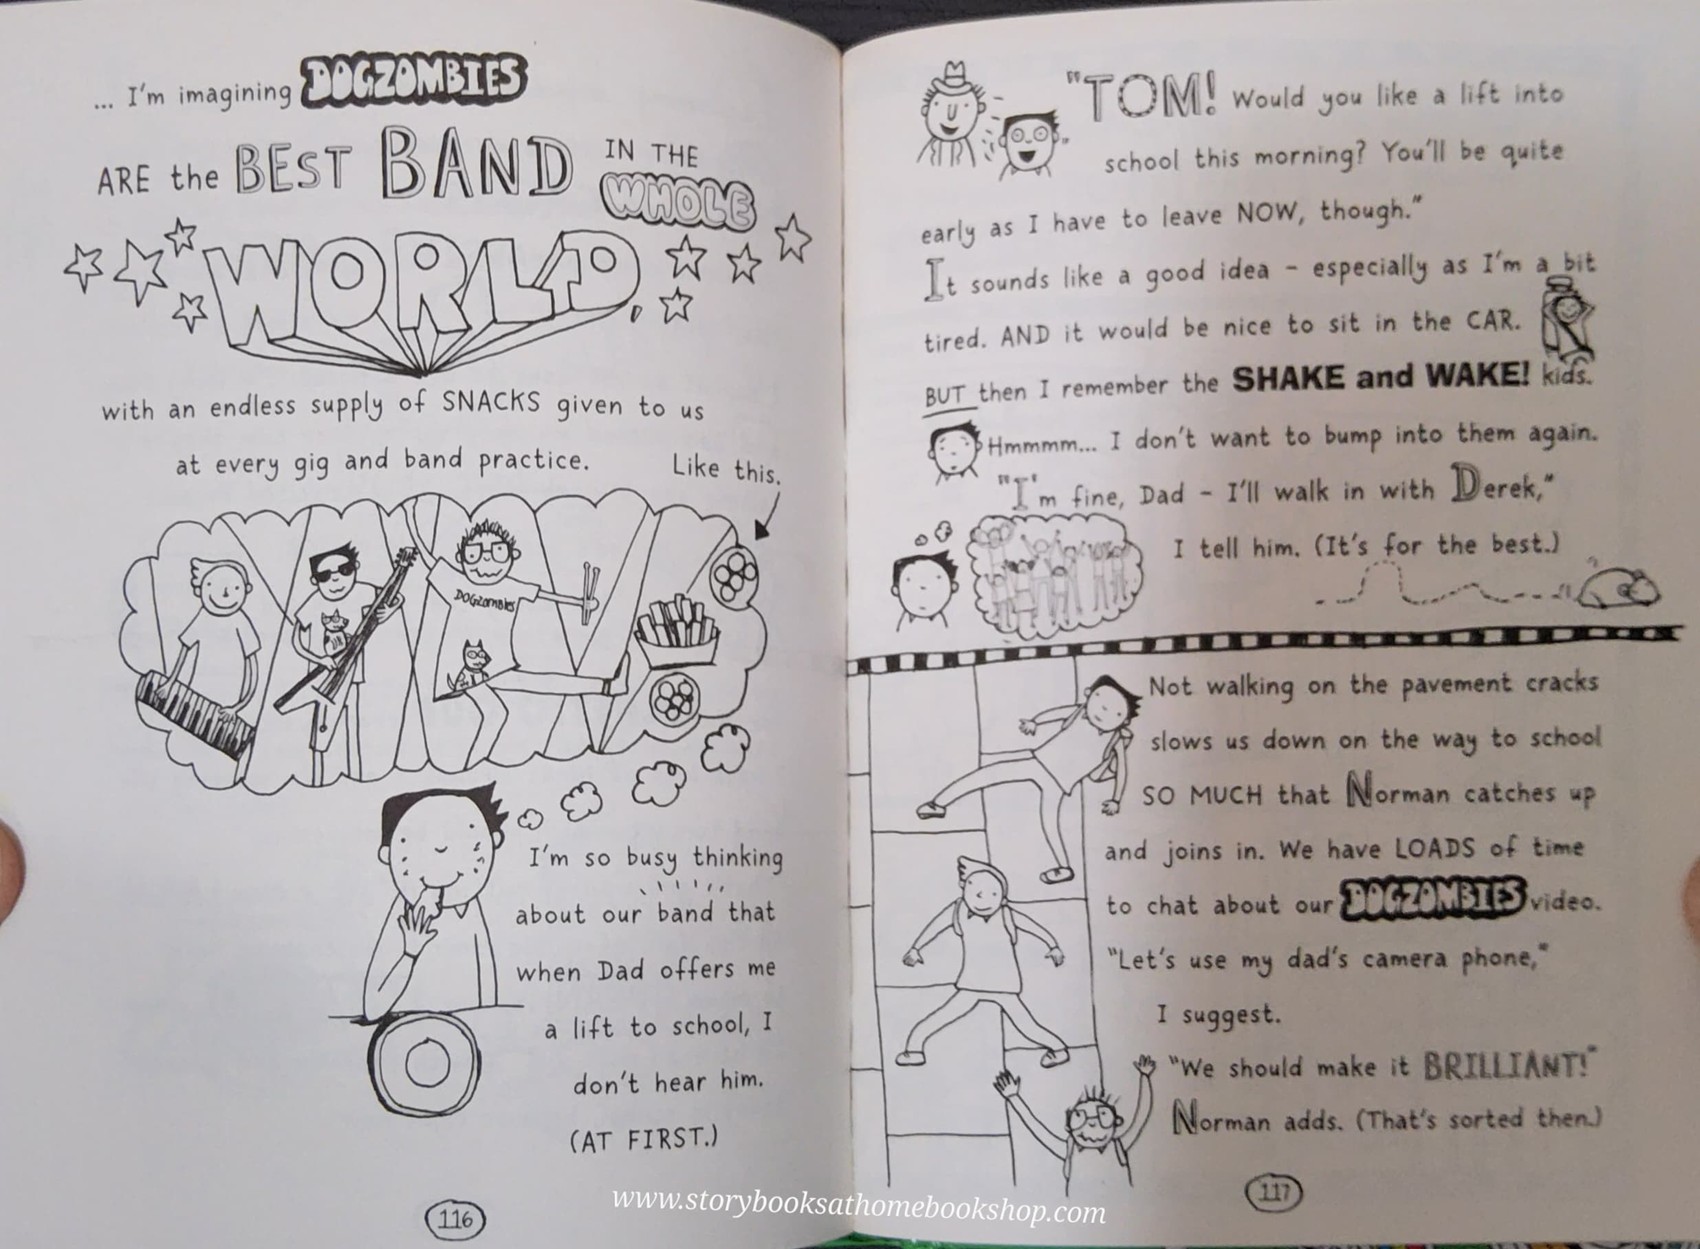 ... I'm imagining DOGZOMBIES
ARE the BEST BAND IN THE
WHOLE
WORLD,
with an endless supply of SNACKS given to us
at every gig and band practice. Like this.
DOGZOMBIES
I'm so busy thinking
about our band that
when Dad offers me
a lift to school, I
don't hear him.
(AT FIRST.)
116
"TOM! Would you like a lift into
school this morning? You'll be quite
early as I have to leave NOW, though."
It sounds like a good idea – especially as I'm a bit
tired. AND it would be nice to sit in the CAR.
BUT then I remember the SHAKE and WAKE! kids.
Hmmmm... I don't want to bump into them again.
"I'm fine, Dad – I'll walk in with Derek,"
I tell him. (It's for the best.)
Not walking on the pavement cracks
slows us down on the way to school
SO MUCH that Norman catches up
and joins in. We have LOADS of time
to chat about our DOGZOMBIES video.
"Let's use my dad's camera phone,"
I suggest.
"We should make it BRILLIANT!"
Norman adds. (That's sorted then.)
117
www.storybooksathomebookshop.com